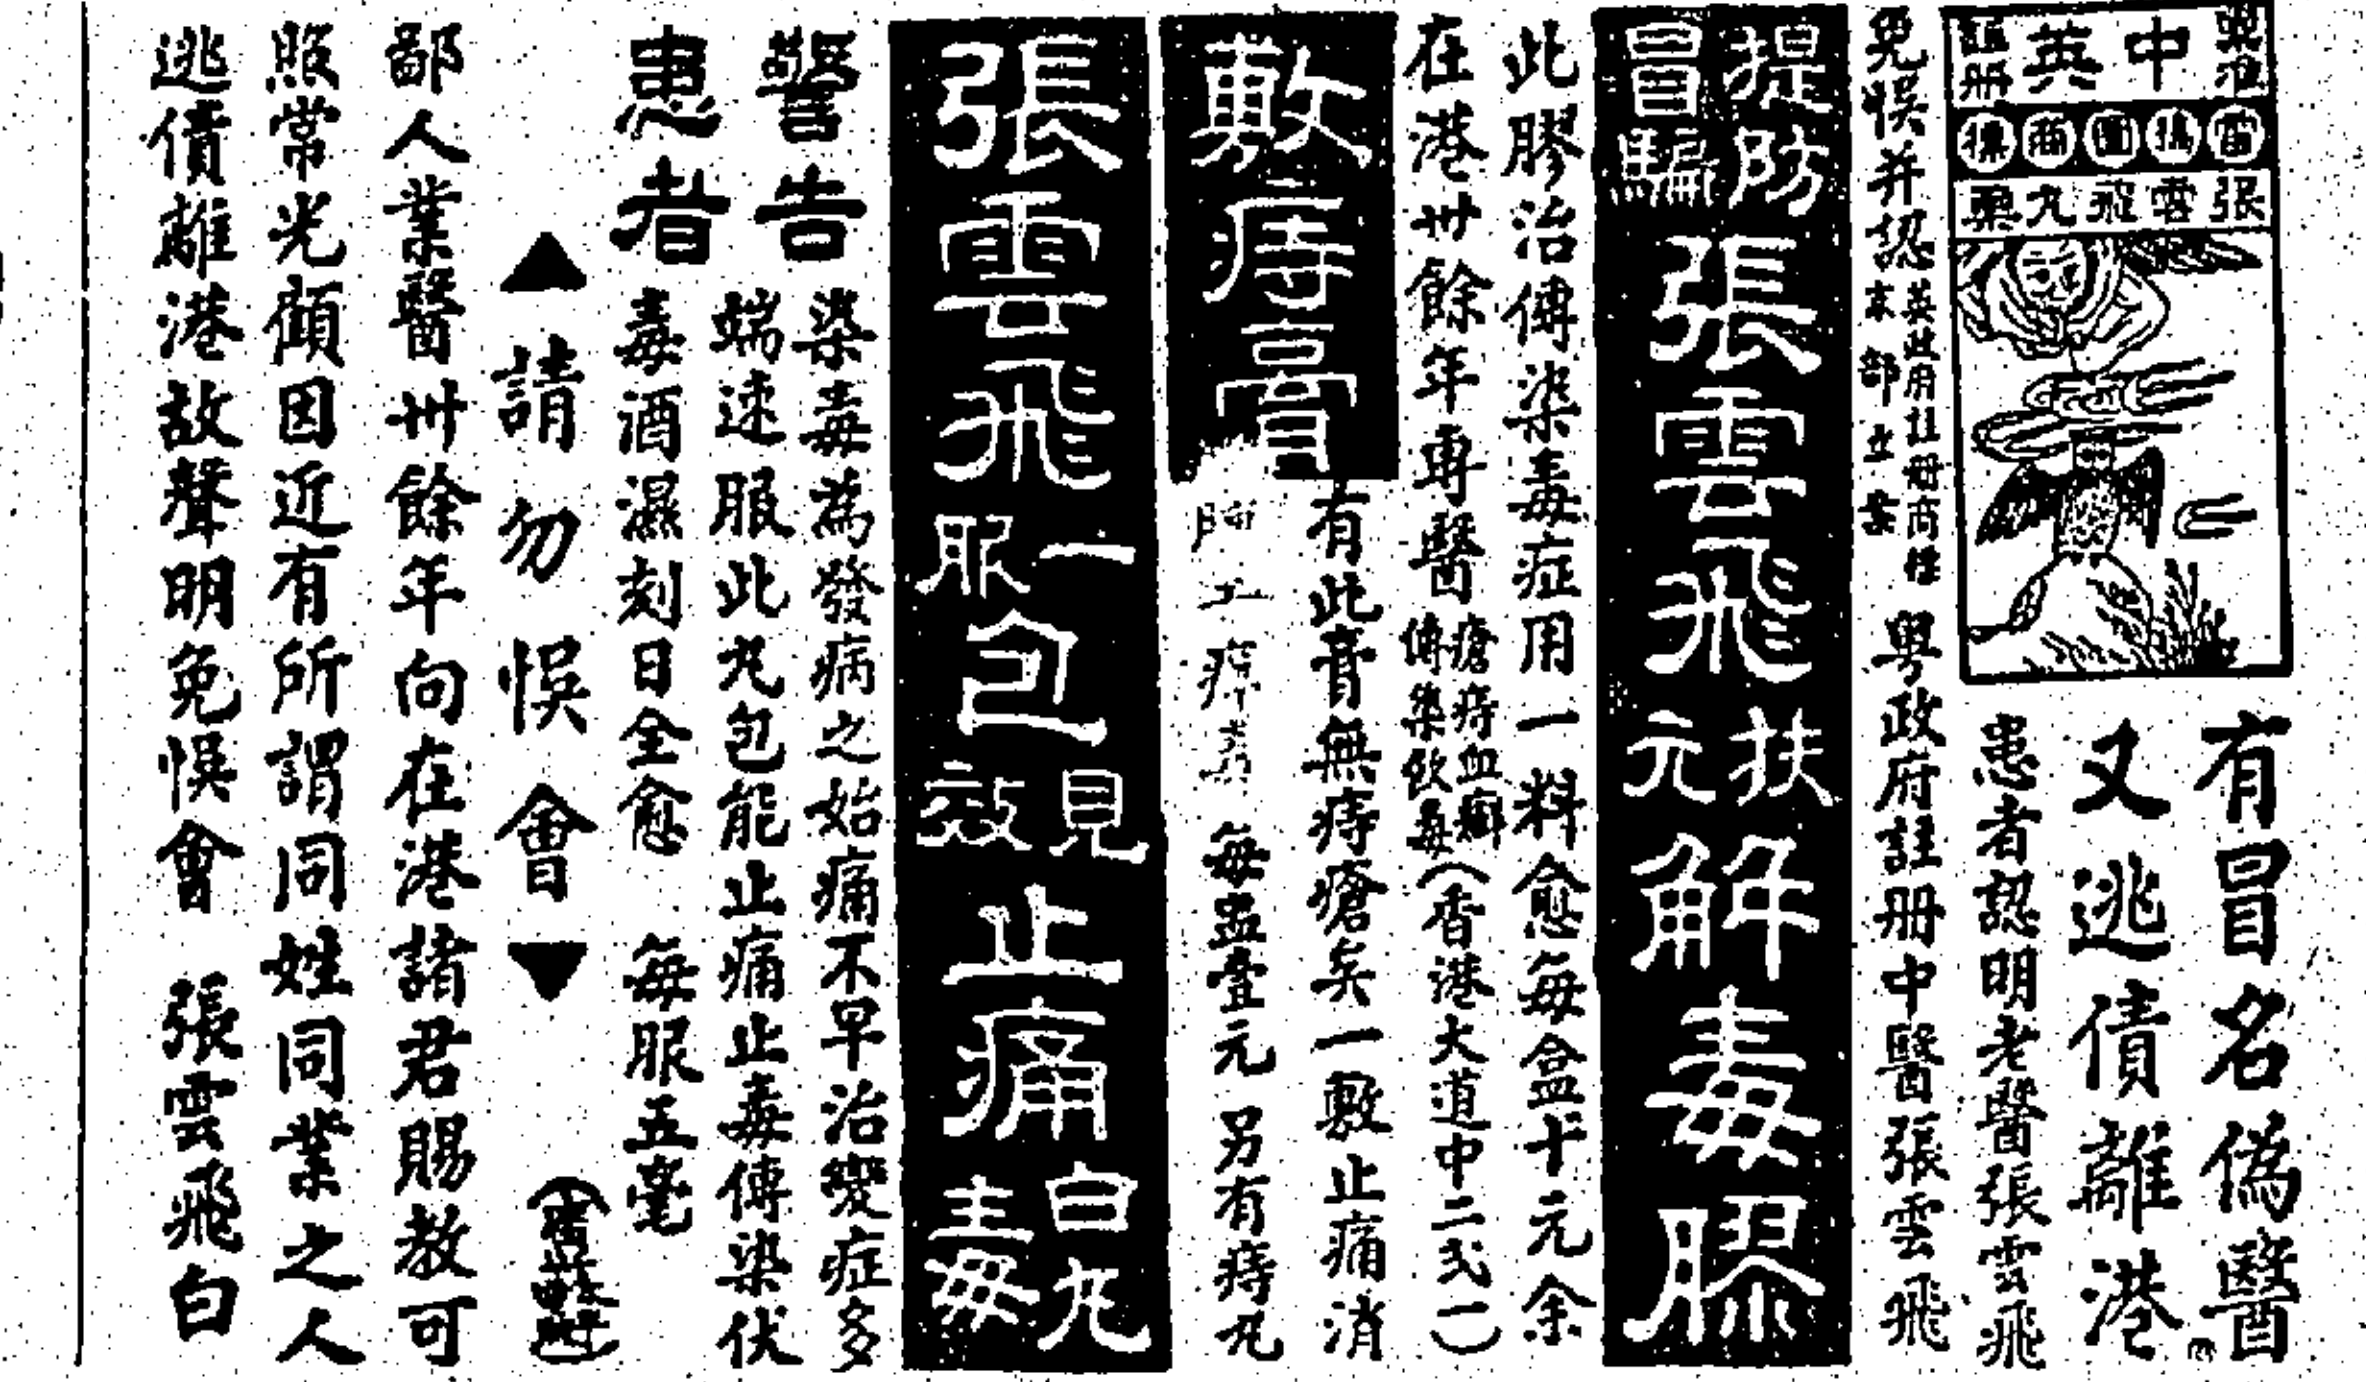 中英
註冊
張雲飛丸藥
有冒名偽醫
又逃債離港
患者認明老醫張雲飛
粵政府註冊中醫張雲飛
免悞并認
英政府註冊商標
提防冒騙
張雲飛
扶元
解毒膠
此膠治傳染毒症用一料愈每盒十元余
在港卅餘年專醫
瘡痔血癬
傳染飲毒
(香港大道中二弍一)
敷痔膏
有此膏無痔瘡矣一敷止痛消
每盅壹元 另有痔丸
張雲飛
一服
包
見效
止痛
白丸
毒
警告
患者
染毒為發病之始痛不早治變症多
端速服此丸包能止痛止毒傳染伏
毒酒濕刻日全愈 每服五毫
▲請勿悞會▼
鄙人業醫卅餘年向在港諸君賜教可
照常光顧因近有所謂同姓同業之人
逃債離港故聲明免悞會 張雲飛白